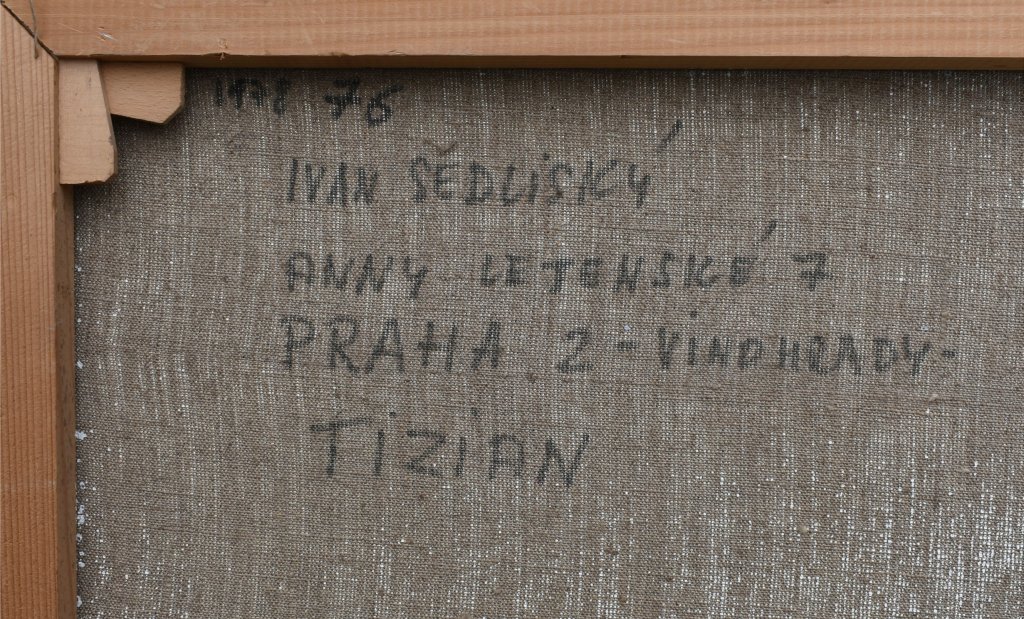 1978 76
IVAN SEDLISKÝ
ANNY LETENSKÉ 7
PRAHA 2 - VINOHRADY -
TIZIAN